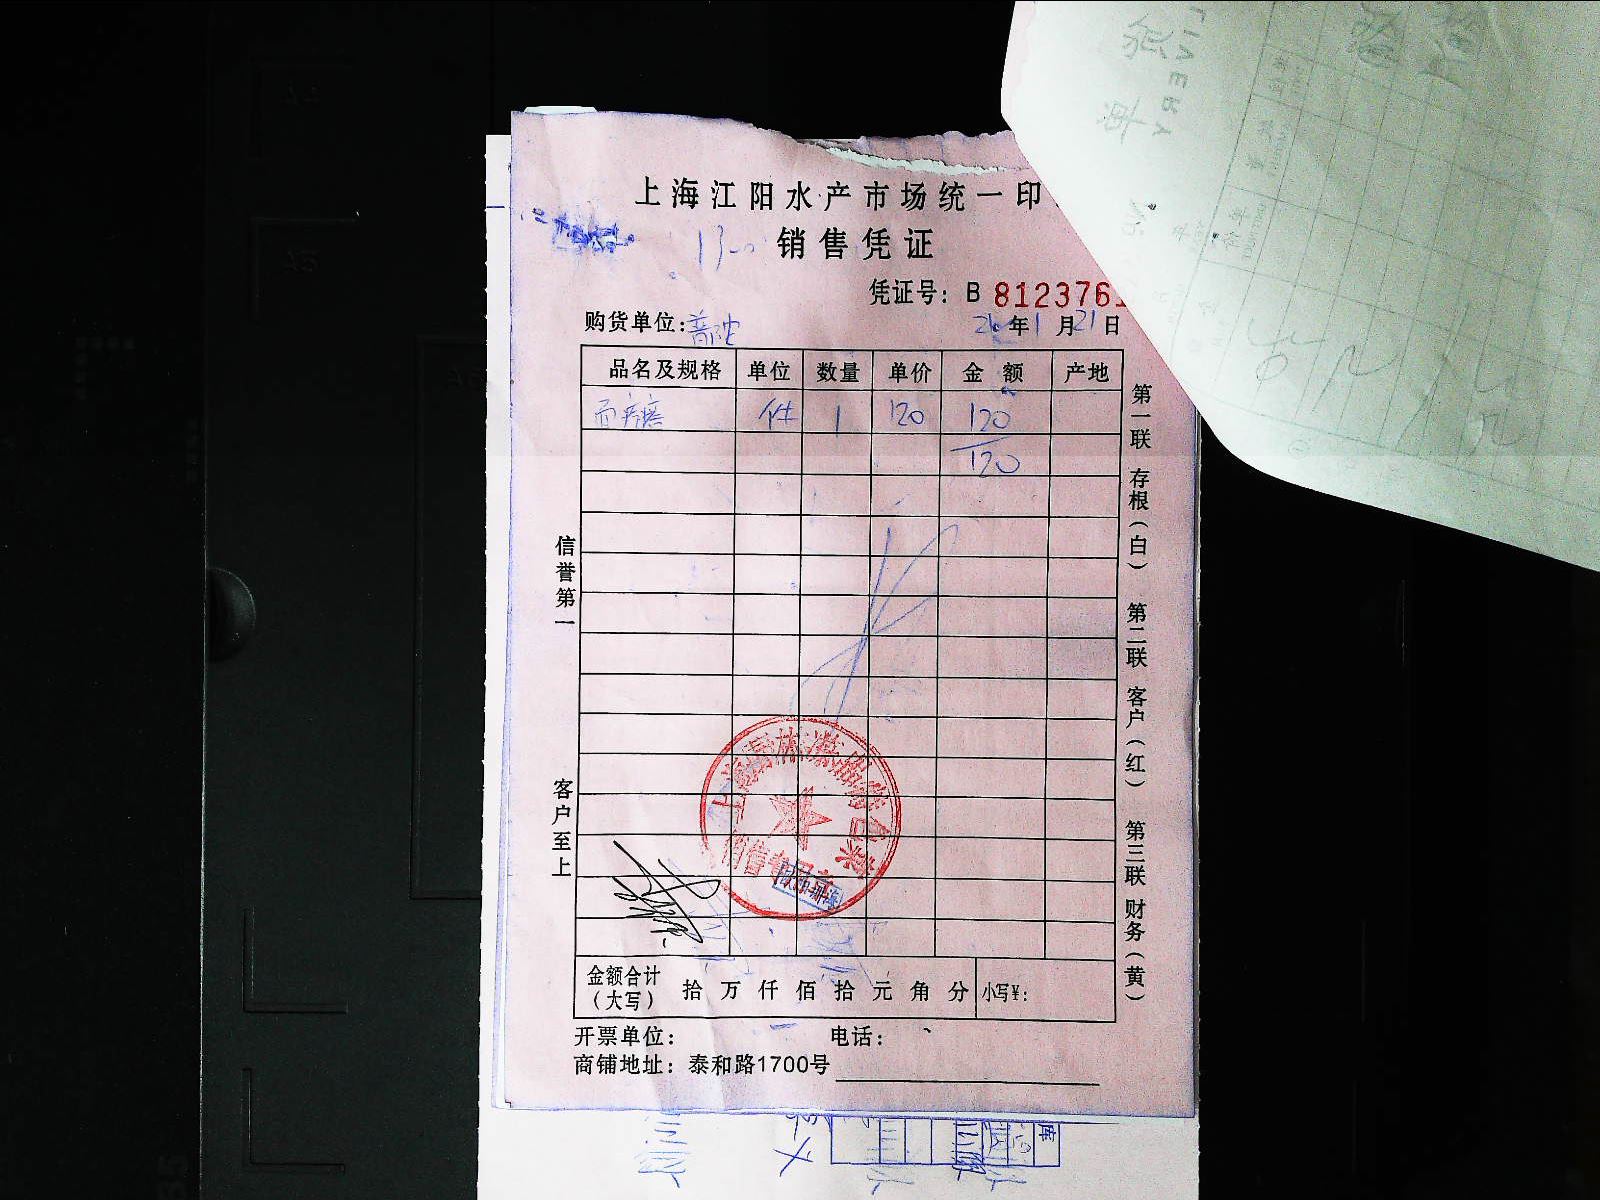 上海江阳水产市场统一印
销售凭证
凭证号：B 812376
购货单位：普陀 年1月21日
品名及规格 单位 数量 单价 金额 产地
件 1 120 120
120
信誉第一
客户至上
第一联 存根（白） 第二联 客户（红） 第三联 财务（黄）
销售专用章
金额合计（大写） 拾 万 仟 佰 拾 元 角 分 小写¥：
开票单位： 电话：
商铺地址：泰和路1700号